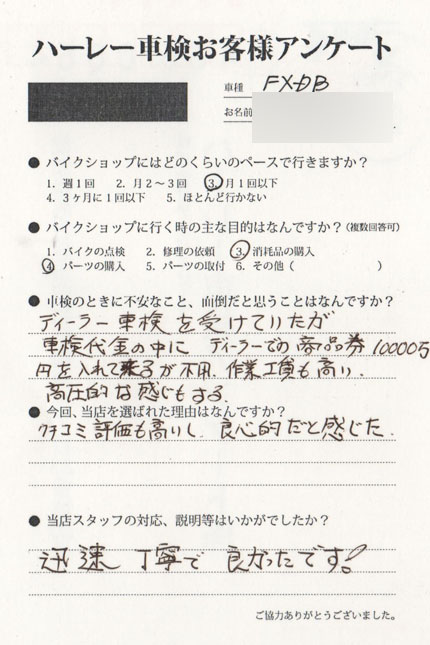 ハーレー車検お客様アンケート
車種 FXDB
お名前
● バイクショップにはどのくらいのペースで行きますか？
1. 週1回 2. 月2〜3回 3. 月1回以下
4. 3ヶ月に1回以下 5. ほとんど行かない
● バイクショップに行く時の主な目的はなんですか？（複数回答可）
1. バイクの点検 2. 修理の依頼 3. 消耗品の購入
4. パーツの購入 5. パーツの取付 6. その他（ ）
● 車検のときに不安なこと、面倒だと思うことはなんですか？
ディーラー車検を受けていたが
車検代金の中に ディーラーでの商品券
円を入れて来るが不用. 作業工賃も高い.
高圧的な感じもする.
● 今回、当店を選ばれた理由はなんですか？
クチコミ評価も高いし. 良心的だと感じた.
● 当店スタッフの対応、説明等はいかがでしたか？
迅速 丁寧で 良かったです!
ご協力ありがとうございました。